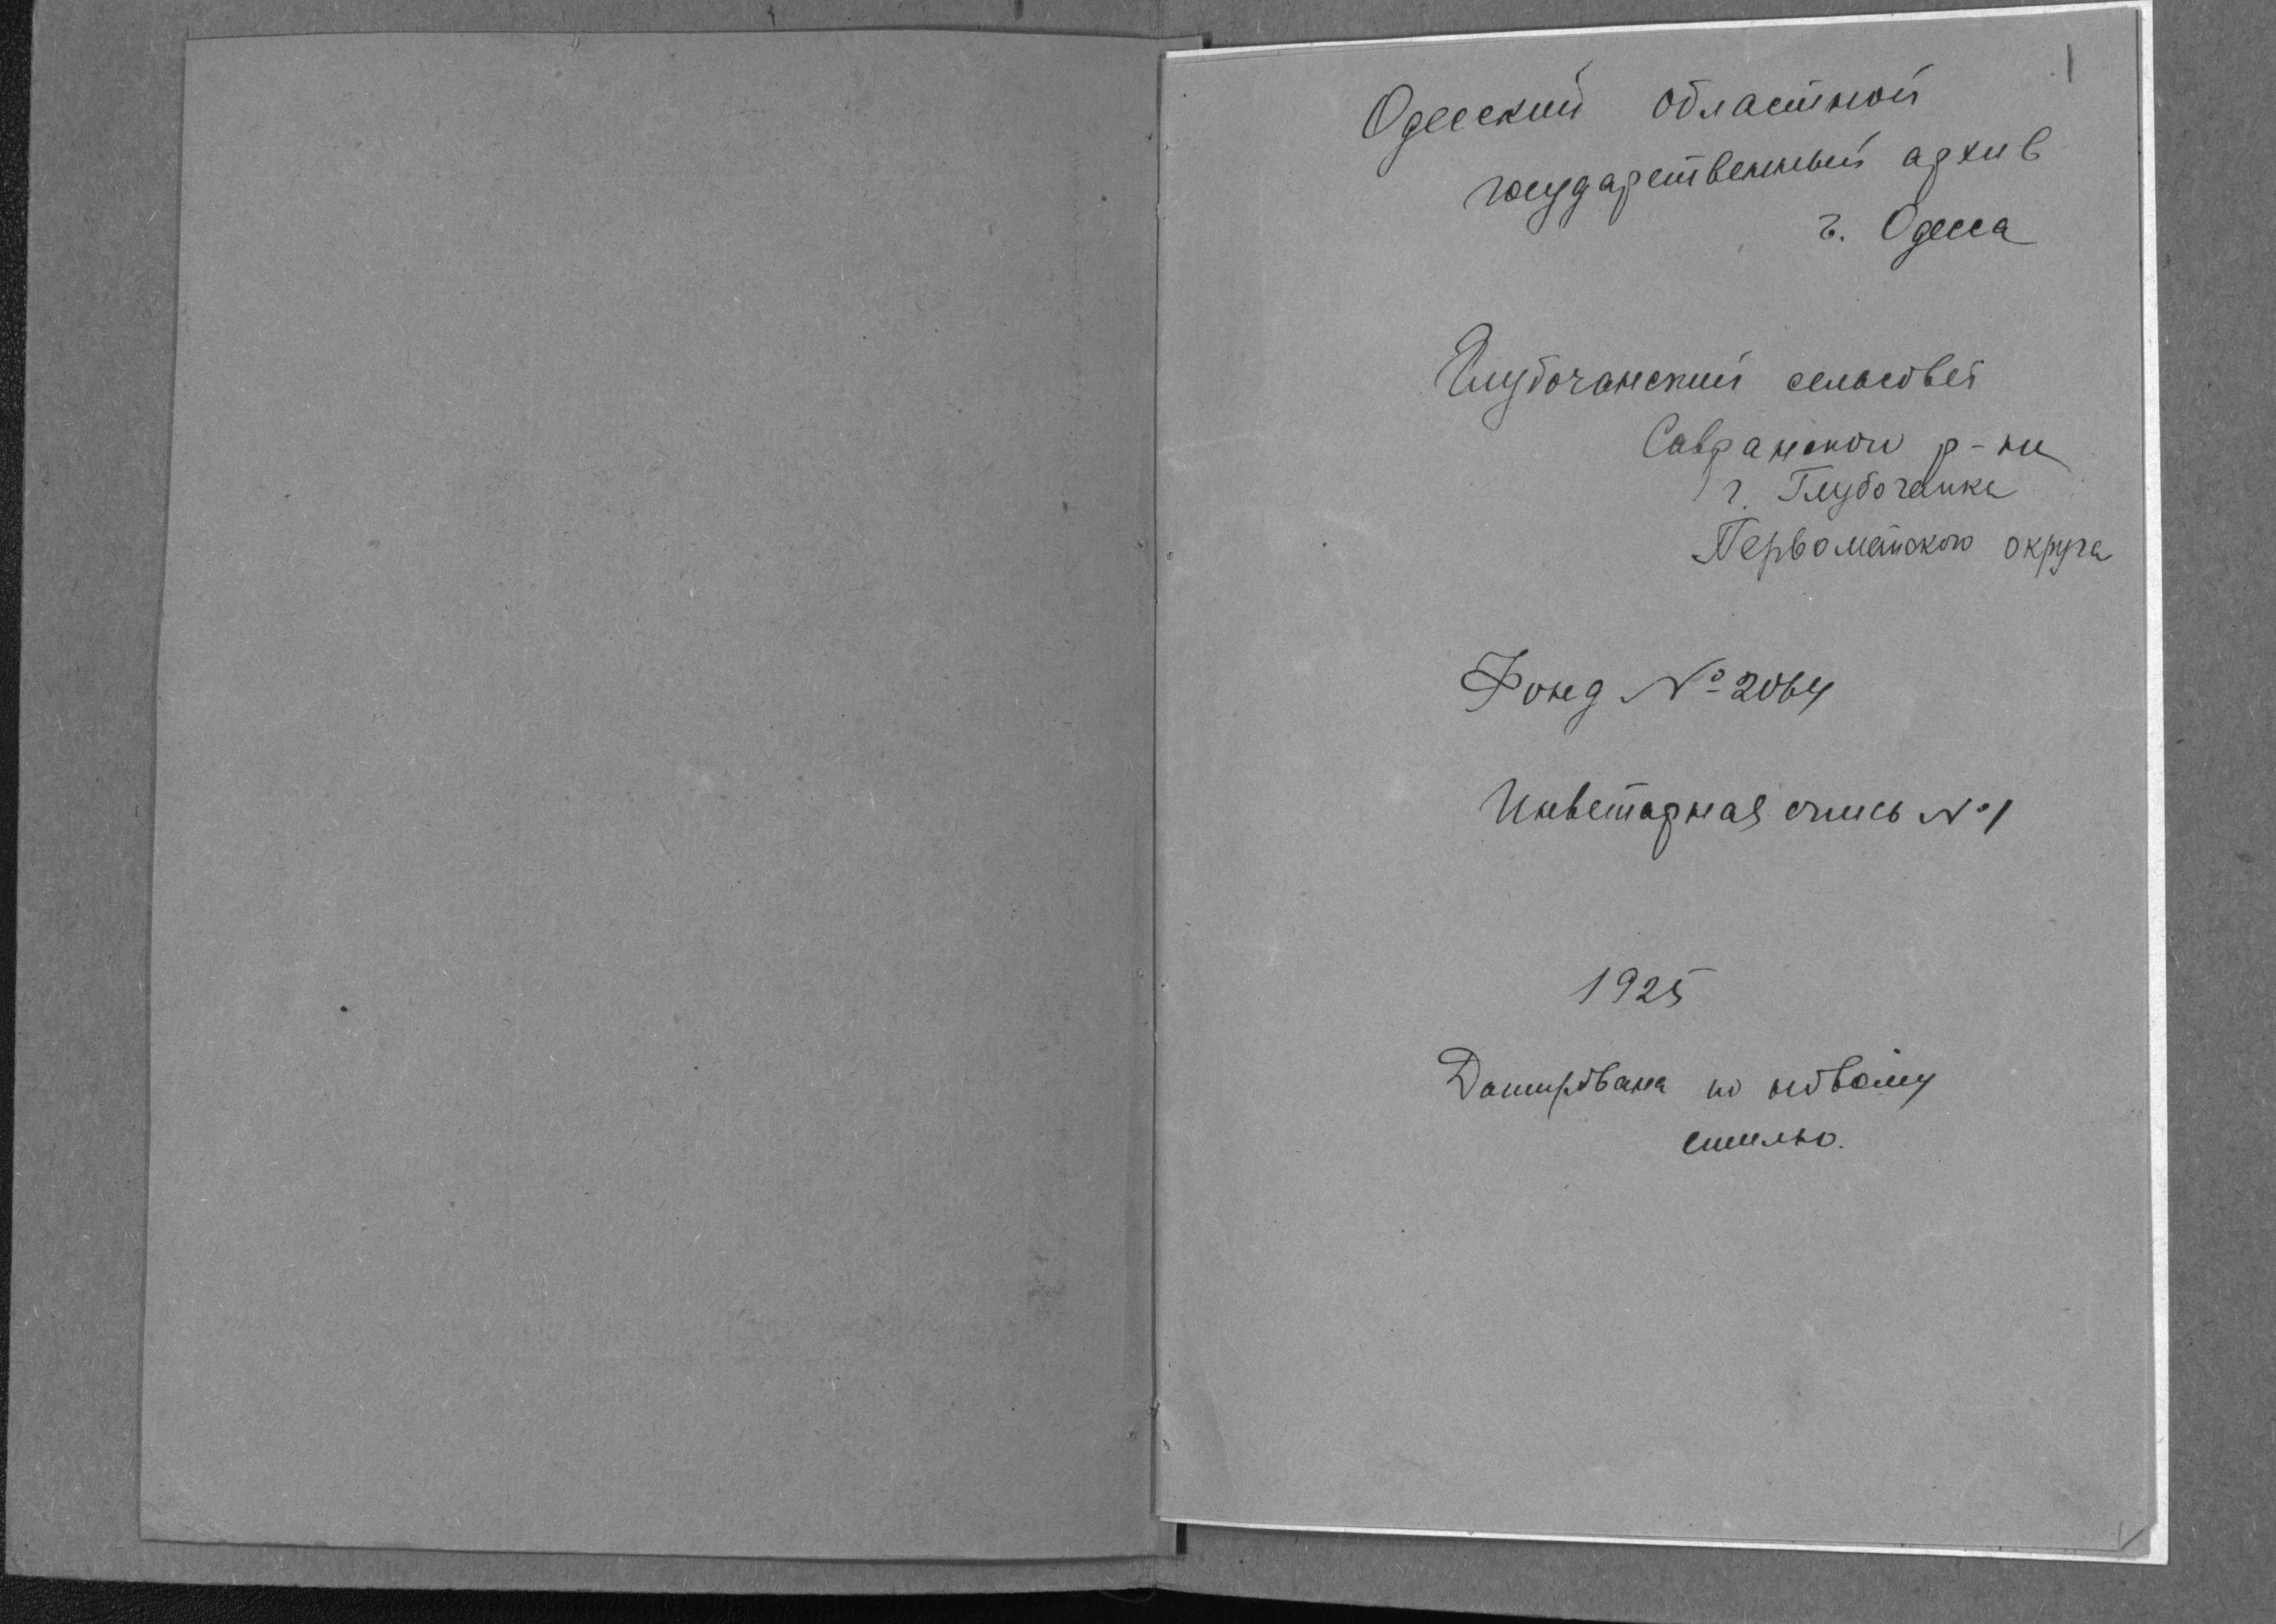 1
Одесский областной
государственный архив
г. Одесса
Глубочанский сельсовет
Савранского р-на
г. Глубочанка
Первомайского округа
Фонд № 2064
Инветарная опись № 1
1925
Датирована по новому
стилю.